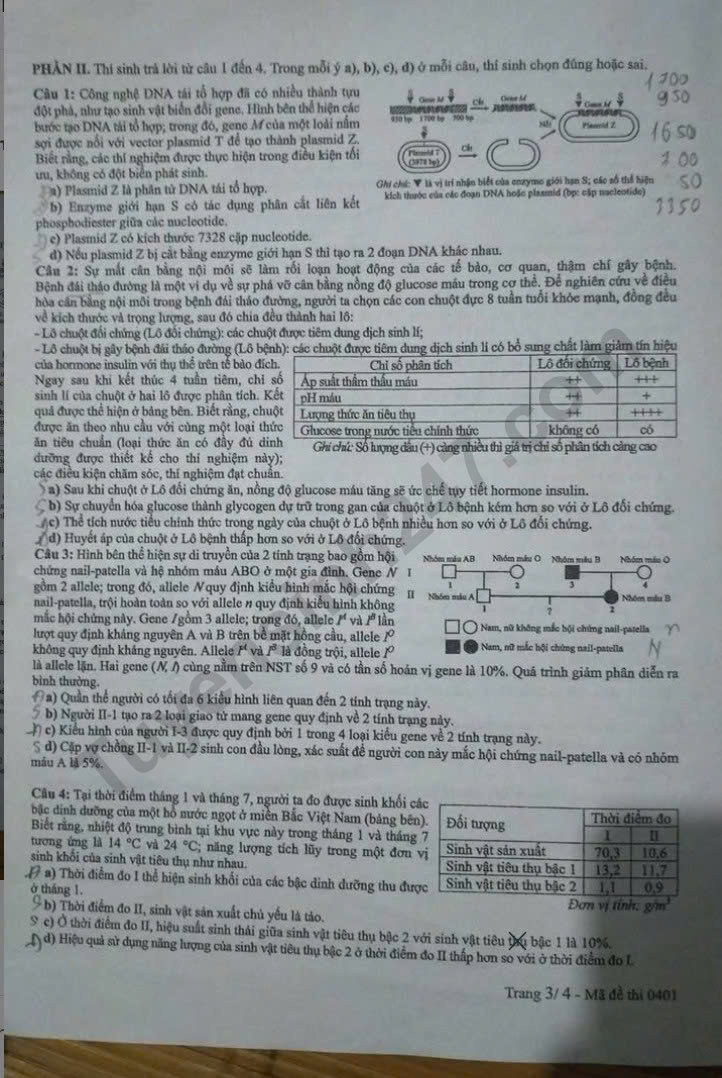 PHẦN II. Thí sinh trả lời từ câu 1 đến 4. Trong mỗi ý a), b), c), d) ở mỗi câu, thí sinh chọn đúng hoặc sai.
Câu 1: Công nghệ DNA tái tổ hợp đã có nhiều thành tựu
đột phá, như tạo sinh vật biến đổi gene. Hình bên thể hiện các
bước tạo DNA tái tổ hợp; trong đó, gene M của một loài nấm
sợi được nối với vector plasmid T để tạo thành plasmid Z.
Biết rằng, các thí nghiệm được thực hiện trong điều kiện tối
ưu, không có đột biến phát sinh.
a) Plasmid Z là phân tử DNA tái tổ hợp.
b) Enzyme giới hạn S có tác dụng phân cắt liên kết
phosphodiester giữa các nucleotide.
c) Plasmid Z có kích thước 7328 cặp nucleotide.
d) Nếu plasmid Z bị cắt bằng enzyme giới hạn S thì tạo ra 2 đoạn DNA khác nhau.
Gene M
Cắt
Gene M
S
S
Gene M
Nối
Plasmid Z
Plasmid T
Cắt
Ghi chú: ▼ là vị trí nhận biết của enzyme giới hạn S; các số thể hiện
kích thước của các đoạn DNA hoặc plasmid (bp: cặp nucleotide)
1700
950
1650
700
50
3350
Câu 2: Sự mất cân bằng nội môi sẽ làm rối loạn hoạt động của các tế bào, cơ quan, thậm chí gây bệnh.
Bệnh đái tháo đường là một ví dụ về sự phá vỡ cân bằng nồng độ glucose máu trong cơ thể. Để nghiên cứu về điều
hòa cân bằng nội môi trong bệnh đái tháo đường, người ta chọn các con chuột đực 8 tuần tuổi khỏe mạnh, đồng đều
về kích thước và trọng lượng, sau đó chia đều thành hai lô:
- Lô chuột đối chứng (Lô đối chứng): các chuột được tiêm dung dịch sinh lí;
- Lô chuột bị gây bệnh đái tháo đường (Lô bệnh): các chuột được tiêm dung dịch sinh lí có bổ sung chất làm giảm tín hiệu
của hormone insulin với thụ thể trên tế bào đích.
Ngay sau khi kết thúc 4 tuần tiêm, chỉ số
sinh lí của chuột ở hai lô được phân tích. Kết
quả được thể hiện ở bảng bên. Biết rằng, chuột
được ăn theo nhu cầu với cùng một loại thức
ăn tiêu chuẩn (loại thức ăn có đầy đủ dinh
dưỡng được thiết kế cho thí nghiệm này);
các điều kiện chăm sóc, thí nghiệm đạt chuẩn.
Chỉ số phân tích Lô đối chứng Lô bệnh
Áp suất thẩm thấu máu ++ +++
pH máu ++ +
Lượng thức ăn tiêu thụ ++ ++++
Glucose trong nước tiểu chính thức không có có
Ghi chú: Số lượng dấu (+) càng nhiều thì giá trị chỉ số phân tích càng cao
a) Sau khi chuột ở Lô đối chứng ăn, nồng độ glucose máu tăng sẽ ức chế tụy tiết hormone insulin.
b) Sự chuyển hóa glucose thành glycogen dự trữ trong gan của chuột ở Lô bệnh kém hơn so với ở Lô đối chứng.
c) Thể tích nước tiểu chính thức trong ngày của chuột ở Lô bệnh nhiều hơn so với ở Lô đối chứng.
d) Huyết áp của chuột ở Lô bệnh thấp hơn so với ở Lô đối chứng.
Câu 3: Hình bên thể hiện sự di truyền của 2 tính trạng bao gồm hội
chứng nail-patella và hệ nhóm máu ABO ở một gia đình. Gene N
gồm 2 allele; trong đó, allele N quy định kiểu hình mắc hội chứng
nail-patella, trội hoàn toàn so với allele n quy định kiểu hình không
mắc hội chứng này. Gene I gồm 3 allele; trong đó, allele Iᴬ và Iᴮ lần
lượt quy định kháng nguyên A và B trên bề mặt hồng cầu, allele Iᴼ
không quy định kháng nguyên. Allele Iᴬ và Iᴮ là đồng trội, allele Iᴼ
là allele lặn. Hai gene (N, I) cùng nằm trên NST số 9 và có tần số hoán vị gene là 10%. Quá trình giảm phân diễn ra
bình thường.
Nhóm máu AB Nhóm máu O Nhóm máu B Nhóm máu O
I 1 2 3 4
II Nhóm máu A Nhóm máu B
1 ? 2
Nam, nữ không mắc hội chứng nail-patella n
Nam, nữ mắc hội chứng nail-patella N
a) Quần thể người có tối đa 6 kiểu hình liên quan đến 2 tính trạng này.
b) Người II-1 tạo ra 2 loại giao tử mang gene quy định về 2 tính trạng này.
c) Kiểu hình của người I-3 được quy định bởi 1 trong 4 loại kiểu gene về 2 tính trạng này.
d) Cặp vợ chồng II-1 và II-2 sinh con đầu lòng, xác suất để người con này mắc hội chứng nail-patella và có nhóm
máu A là 5%.
Câu 4: Tại thời điểm tháng 1 và tháng 7, người ta đo được sinh khối các
bậc dinh dưỡng của một hồ nước ngọt ở miền Bắc Việt Nam (bảng bên).
Biết rằng, nhiệt độ trung bình tại khu vực này trong tháng 1 và tháng 7
tương ứng là 14 °C và 24 °C; năng lượng tích lũy trong một đơn vị
sinh khối của sinh vật tiêu thụ như nhau.
Đối tượng Thời điểm đo
I II
Sinh vật sản xuất 70,3 10,6
Sinh vật tiêu thụ bậc 1 13,2 11,7
Sinh vật tiêu thụ bậc 2 1,1 0,9
Đơn vị tính: g/m³
a) Thời điểm đo I thể hiện sinh khối của các bậc dinh dưỡng thu được
ở tháng 1.
b) Thời điểm đo II, sinh vật sản xuất chủ yếu là tảo.
c) Ở thời điểm đo II, hiệu suất sinh thái giữa sinh vật tiêu thụ bậc 2 với sinh vật tiêu thụ bậc 1 là 10%.
d) Hiệu quả sử dụng năng lượng của sinh vật tiêu thụ bậc 2 ở thời điểm đo II thấp hơn so với ở thời điểm đo I.
Trang 3/ 4 - Mã đề thi 0401
tuyensinh247.com